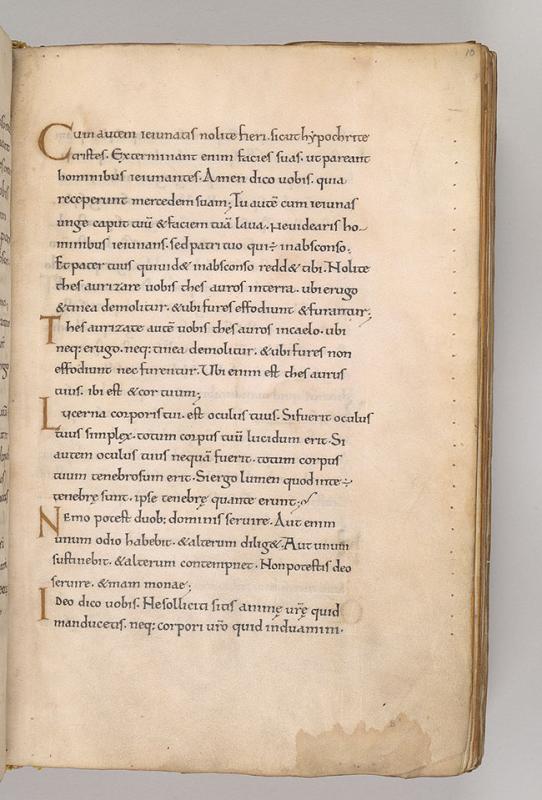 10
Cum autem ieiunatis nolite fieri. sicut hypochrite
tristes. Exterminant enim facies suas. ut pareant
hominibus ieiunantes. Amen dico uobis. quia
receperunt mercedem suam; Tu autē cum ieiunas
unge caput tuū & faciem tuā laua. ne uidearis ho-
minibus ieiunans. sed patri tuo qui ÷ in absconso;
Et pater tuus qui uid& in absconso redd& tibi. Nolite
thesaurizare uobis thesauros in terra. ubi erugo
& tinea demolitur. & ubi fures effodiunt & furantur;
Thesaurizate autē uobis thesauros in caelo. ubi
neq; erugo. neq; tinea demolitur. & ubi fures non
effodiunt nec furentur. Ubi enim est thesaurus
tuus. ibi est & cor tuum;
Lucerna corporis tui. est oculus tuus. Si fuerit oculus
tuus simplex. totum corpus tuū lucidum erit. Si
autem oculus tuus nequā fuerit. totum corpus
tuum tenebrosum erit. Si ergo lumen quod in te ÷
tenebrę sunt. ipse tenebrę quante erunt;
Nemo potest duob; dominis seruire. Aut enim
unum odio habebit. & alterum dilig&. Aut unum
sustinebit. & alterum contempnet. Non potestis deo
seruire. & mamonae;
Ideo dico uobis. Ne solliciti sitis animę urę̄ quid
manducetis. neq; corpori uro̅ quid induamini.